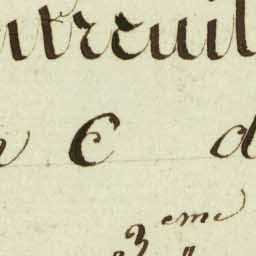 ntreuil
C d
3eme